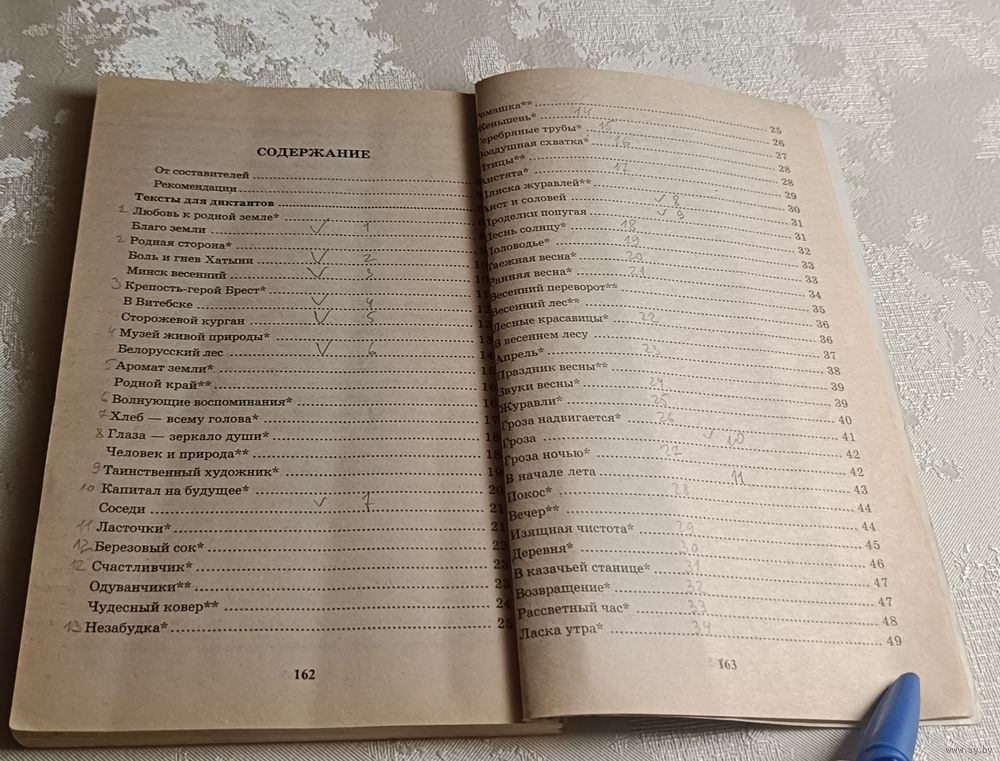 СОДЕРЖАНИЕ
От составителей
Рекомендации
Тексты для диктантов
1 Любовь к родной земле*
Благо земли ✓ 1
2 Родная сторона*
Боль и гнев Хатыни ✓ 2 10
Минск весенний ✓ 3 10
3 Крепость-герой Брест* 11
В Витебске ✓ 4 12
Сторожевой курган ✓ 5 13
4 Музей живой природы* 13
Белорусский лес ✓ 6 14
5 Аромат земли* 15
Родной край** 16
6 Волнующие воспоминания* 16
7 Хлеб — всему голова* 17
8 Глаза — зеркало души* 18
Человек и природа** 18
9 Таинственный художник* 19
10 Капитал на будущее* 20
Соседи ✓ 7 21
11 Ласточки* 21
12 Березовый сок* 22
12 Счастливчик* 23
Одуванчики** 23
Чудесный ковер** 24
13 Незабудка* 25
162
Ромашка** 25
Женьшень* 14 26
Серебряные трубы* 15 27
Воздушная схватка* 16 28
Птицы** 28
Аистята* 17 29
Пляска журавлей** 30
Аист и соловей ✓ 8 31
Проделки попугая ✓ 9 31
Песнь солнцу* 18 32
Половодье* 19 33
Таежная весна* 20 33
Ранняя весна* 21 34
Весенний переворот** 35
Весенний лес** 36
Лесные красавицы* 22 36
В весеннем лесу 37
Апрель* 23 38
Праздник весны** 39
Звуки весны* 24 39
Журавли* 25 40
Гроза надвигается* 26 41
Гроза ✓ 10 42
Гроза ночью* 27 42
В начале лета 11 43
Покос* 28 44
Вечер** 44
Изящная чистота* 29 45
Деревня* 30 46
В казачьей станице* 31 47
Возвращение* 32 47
Рассветный час* 33 48
Ласка утра* 34 49
163
www.ay.by